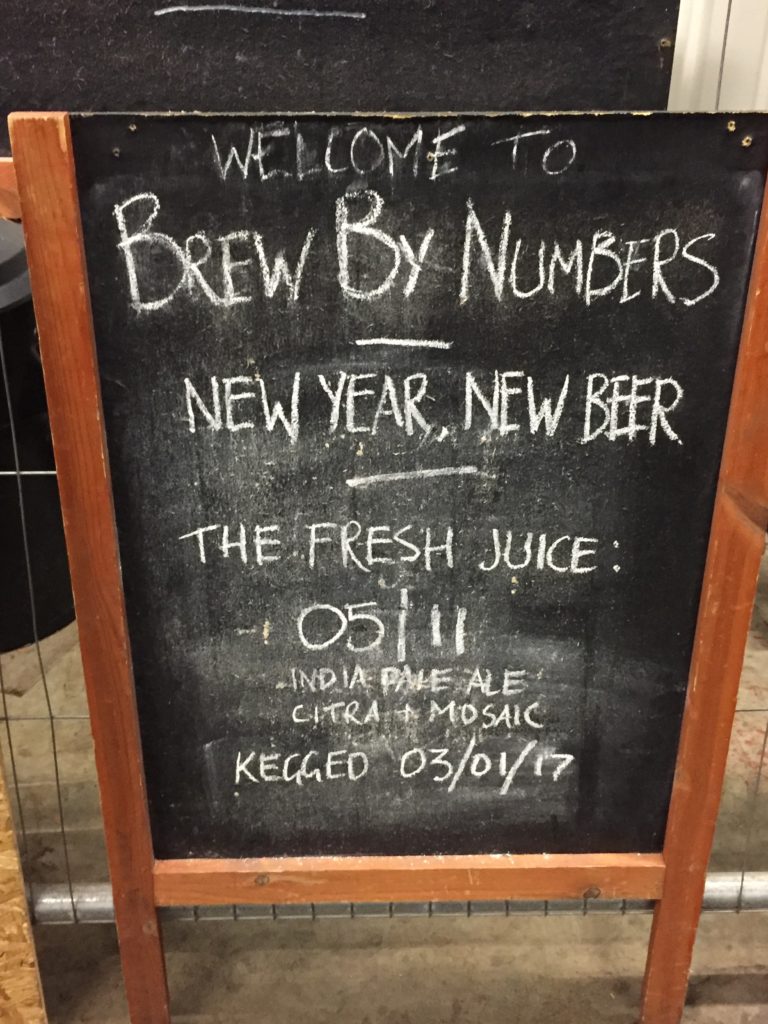 WELCOME TO
BREW BY NUMBERS
NEW YEAR, NEW BEER
THE FRESH JUICE:
05|11
INDIA PALE ALE
CITRA + MOSAIC
KEGGED 03/01/17